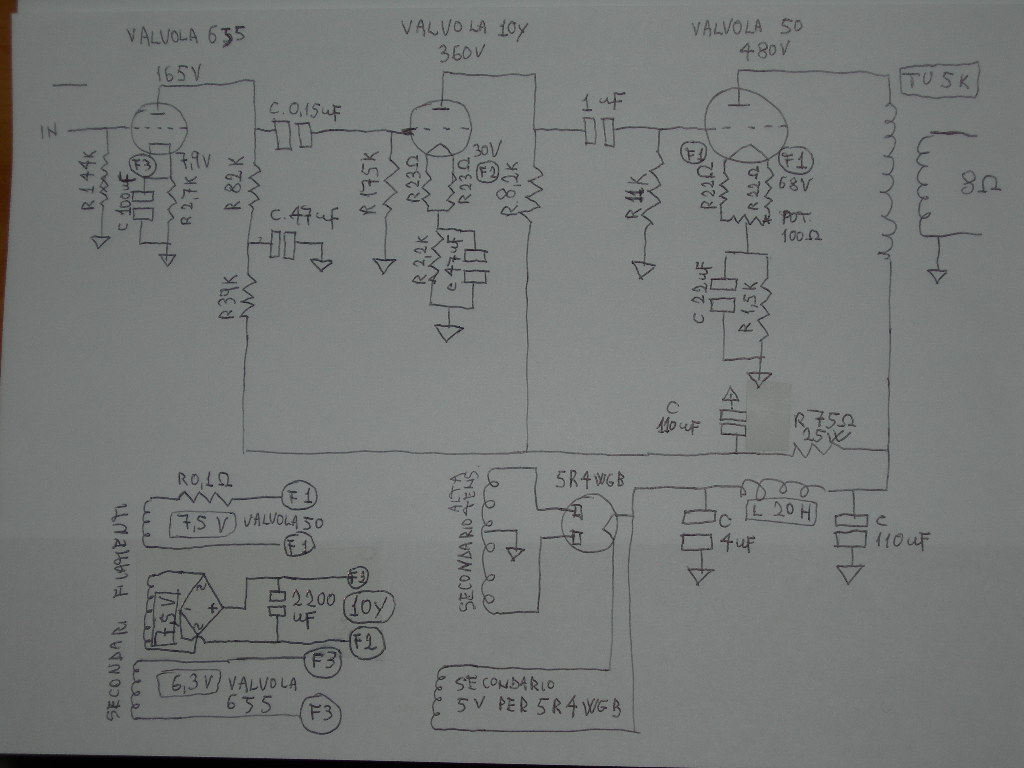 VALVOLA 6J5
VALVOLA 10Y
VALVOLA 50
165V
360V
480V
TU 5K
C. 0,15uF
1 uF
IN
F3
7,9V
30V
F2
F1
F1
68V
8Ω
R 144K
C 100uF
R 2,7K
R 82K
R 175K
R 23Ω
R 23Ω
R 8,2K
R 11K
R 22Ω
R 22Ω
POT
100Ω
C. 47uF
R 39K
R 2,2K
C 47uF
C 22uF
R 1,5K
C
110uF
R 75Ω
25W
R0,1Ω
F1
7,5 V
VALVOLA 50
F1
SECONDARI FILAMENTI
SECONDARIO ALTA TENS.
5R4WGB
L 20H
C
4uF
C
110uF
7,5V
+
-
2200
uF
10Y
F1
F3
6,3V
VALVOLA
6J5
F3
SECONDARIO
5V PER 5R4WGB